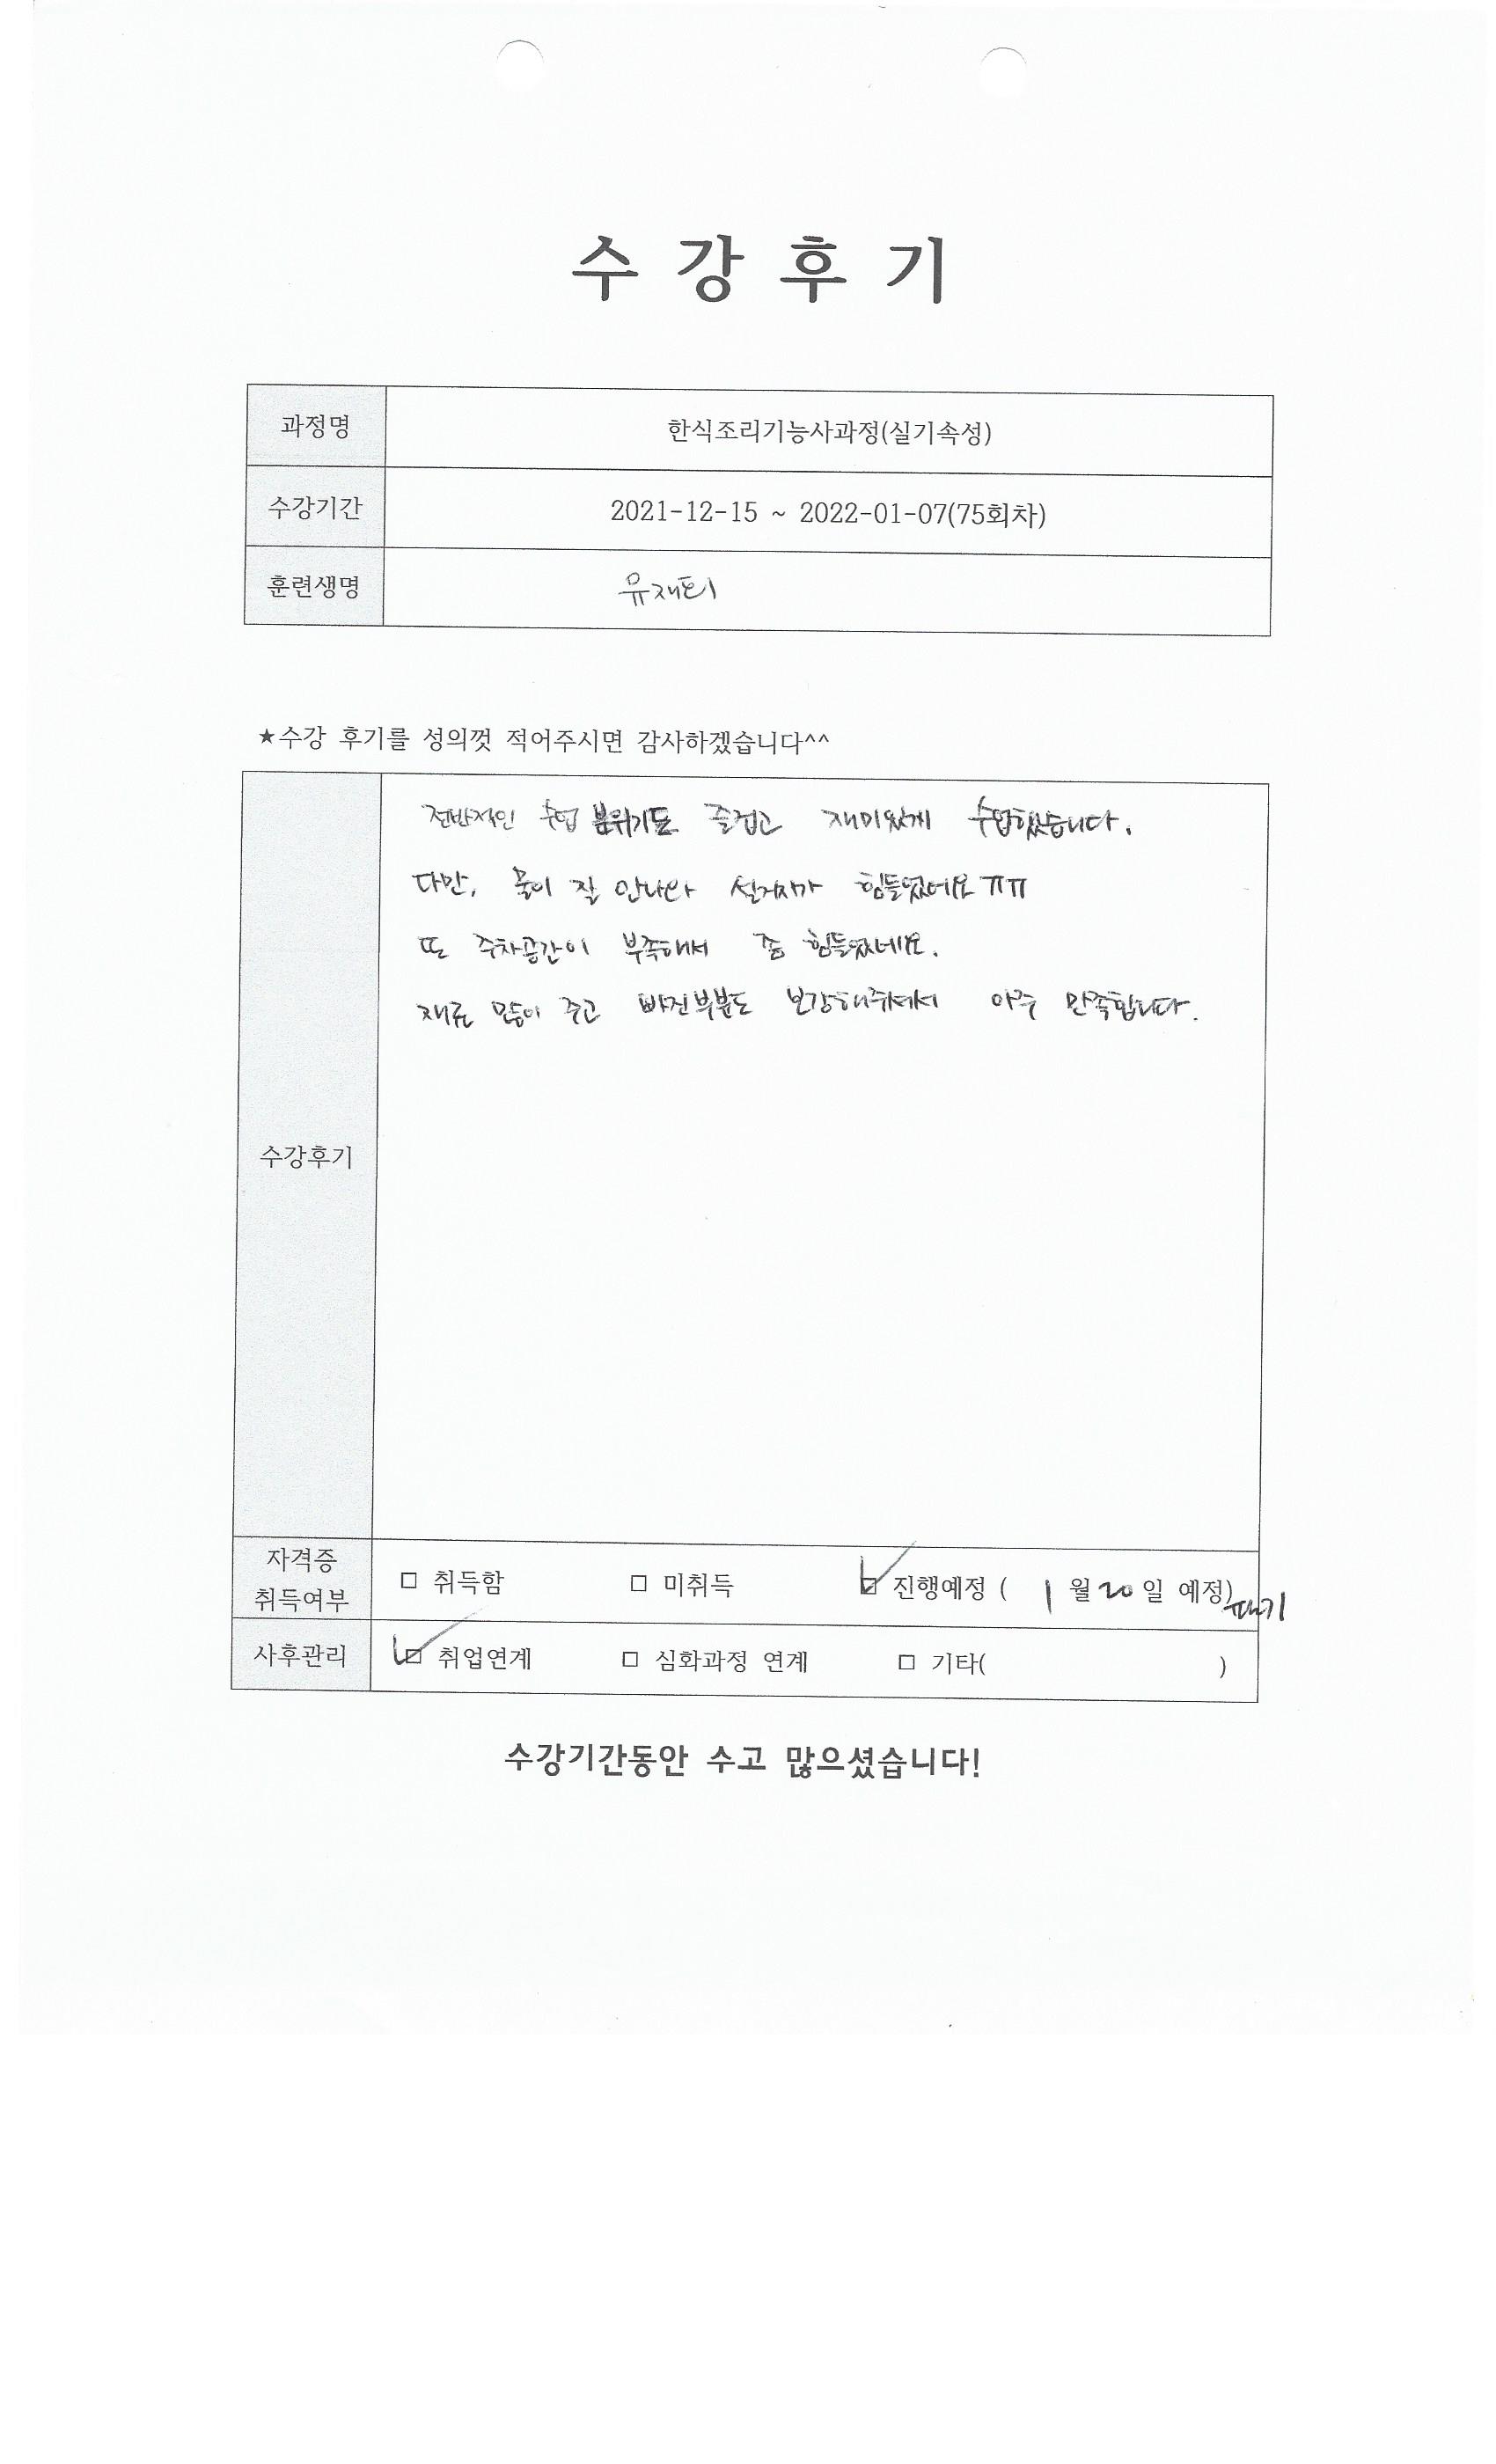 수 강 후 기
과정명 한식조리기능사과정(실기속성)
수강기간 2021-12-15 ~ 2022-01-07(75회차)
훈련생명 유재
★수강 후기를 성의껏 적어주시면 감사하겠습니다^^
전반적인 수업 분위기도 즐겁고 재미있게 수업했습니다.
다만, 물이 잘 안나와 설거지가 힘들었네요 ㅠㅠ
또 주차공간이 부족해서 좀 힘들었네요.
재료 많이 주고 빠진부분도 보강해주셔서 아주 만족합니다.
수강후기
자격증 취득여부 □ 취득함 □ 미취득 ☑ 진행예정 ( 1 월 20 일 예정) 필기
사후관리 ☑ 취업연계 □ 심화과정 연계 □ 기타( )
수강기간동안 수고 많으셨습니다!